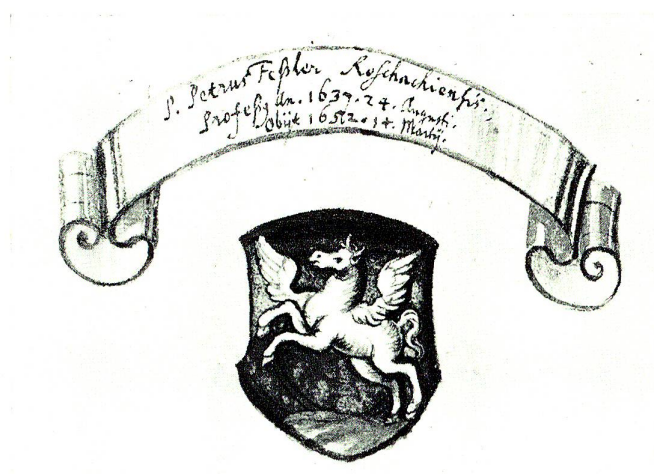 P. Petrus Feßler Roschachiensis.
Professq An. 1637. 24. Augusti.
Obijt 1652. 14. Martij.